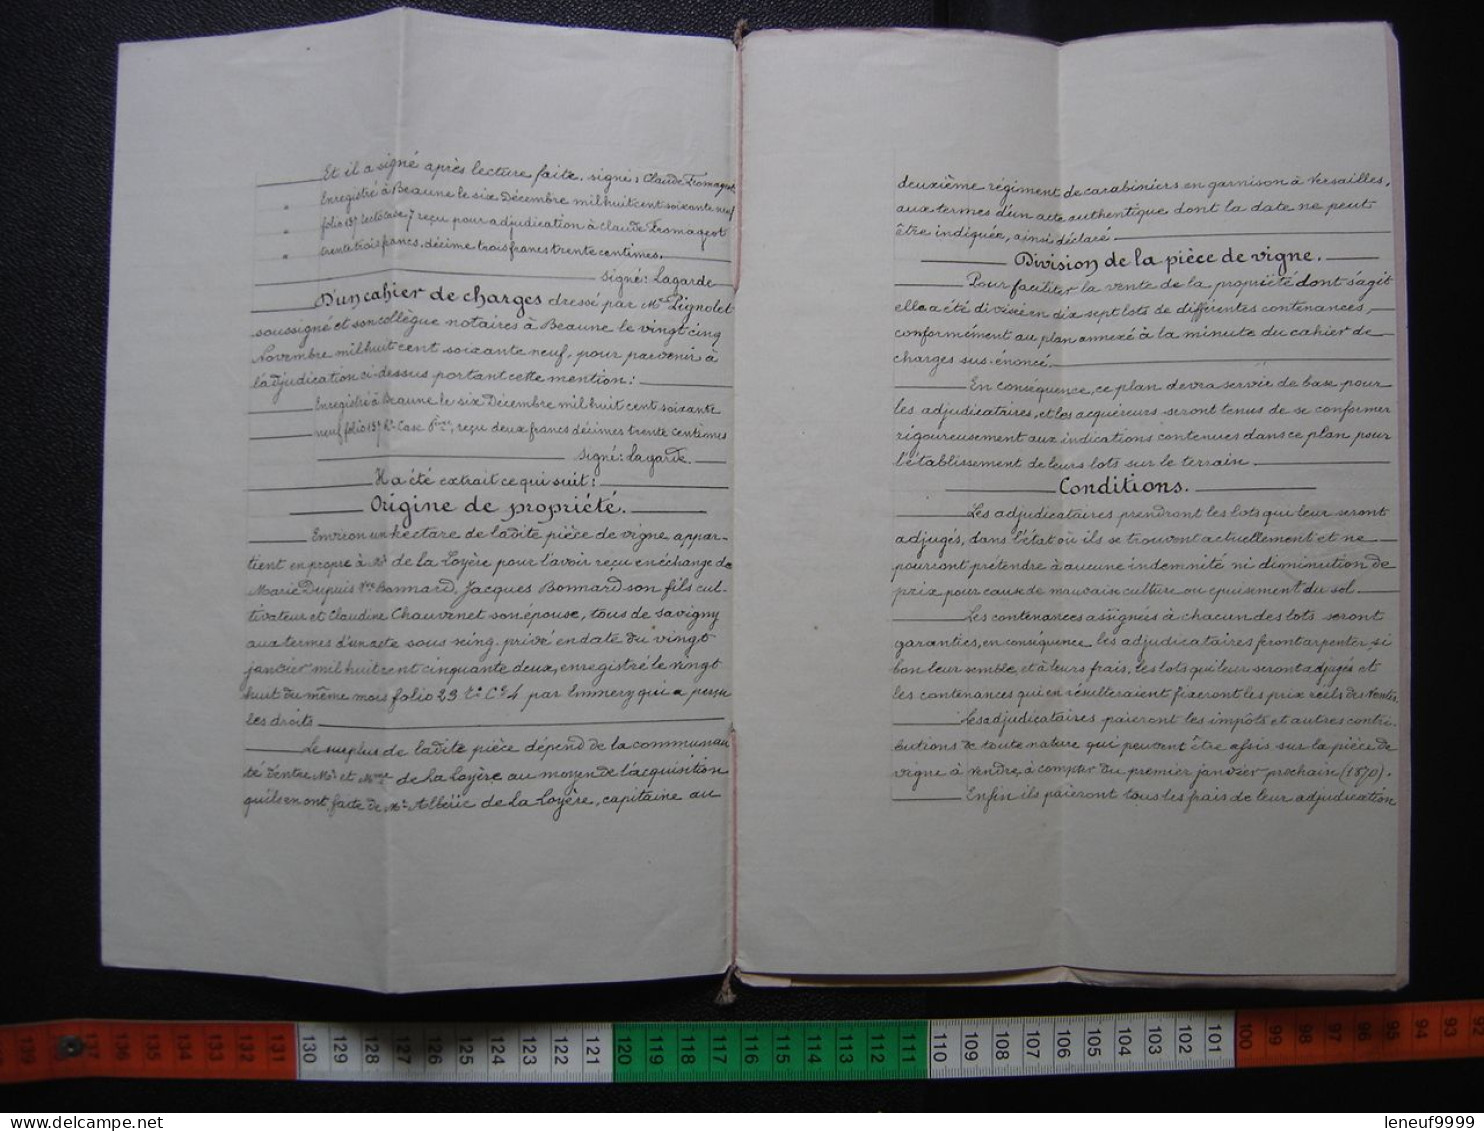 Et il a signé après lecture faite. signé: Claude Fromageot
Enregistré à Beaune le six Décembre mil huit cent soixante neuf
folio 137 recto Case 7 reçu pour adjudication à Claude Fromageot
trente trois francs, décime trois francs trente centimes.
Signé: Lagarde
D'un cahier de charges dressé par Me Pignolet
soussigné et son collègue notaires à Beaune le vingt cinq
Novembre mil huit cent soixante neuf, pour parvenir à
l'adjudication ci-dessus portant cette mention:
Enregistré à Beaune le six Décembre mil huit cent soixante
neuf folio 137 Ro Case reçu deux francs décimes trente centimes
Signé: Lagarde.
Il a été extrait ce qui suit:
Origine de propriété.
Environ un hectare de ladite pièce de vigne appar-
tient en propre à Mr de la Loyère pour l'avoir reçu en échange de
Marie Dupuis Vve Bonnard, Jacques Bonnard son fils cul-
tivateur et Claudine Chauvenet son épouse, tous de Savigny
aux termes d'un acte sous seing privé en date du vingt
janvier mil huit cent cinquante deux, enregistré le vingt
huit du même mois folio 23 Co 4 par Emmery qui a perçu
les droits
Le surplus de ladite pièce dépend de la communau
té d'entre Mr et Mme de La Loyère au moyen de l'acquisition
qu'ils en ont faite de Mr Albéric de La Loyère, capitaine au
deuxième régiment de carabiniers en garnison à Versailles,
aux termes d'un acte authentique dont la date ne peut
être indiquée, ainsi déclaré
Division de la pièce de vigne.
Pour faciliter la vente de la propriété dont s'agit
elle a été divisée en dix sept lots de différentes contenances,
conformément au plan annexé à la minute du cahier de
charges sus-énoncé.
En conséquence, ce plan devra servir de base pour
les adjudicataires, et les acquéreurs seront tenus de se conformer
rigoureusement aux indications contenues dans ce plan pour
l'établissement de leurs lots sur le terrain
Conditions.
Les adjudicataires prendront les lots qui leur seront
adjugés, dans l'état où ils se trouvent actuellement et ne
pourront prétendre à aucune indemnité ni diminution de
prix pour cause de mauvaise culture ou épuisement du sol.
Les contenances assignées à chacun des lots seront
garanties, en conséquence les adjudicataires feront arpenter, si
bon leur semble et à leurs frais, les lots qui leur seront adjugés et
les contenances qui en résulteraient fixeront les prix réels des Ventes.
Les adjudicataires paieront les impôts et autres contri-
butions de toute nature qui peuvent être assis sur la pièce de
vigne à vendre, à compter du premier janvier prochain (1870).
Enfin ils paieront tous les frais de leur adjudication
138 137 136 135 134 133 132 131 130 129 128 127 126 125 124 123 122 121 120 119 118 117 116 115 114 113 112 111 110 109 108 107 106 105 104 103 102 101 100 99 98 97 96 95 94 93
www.delcampe.net
leneuf9999